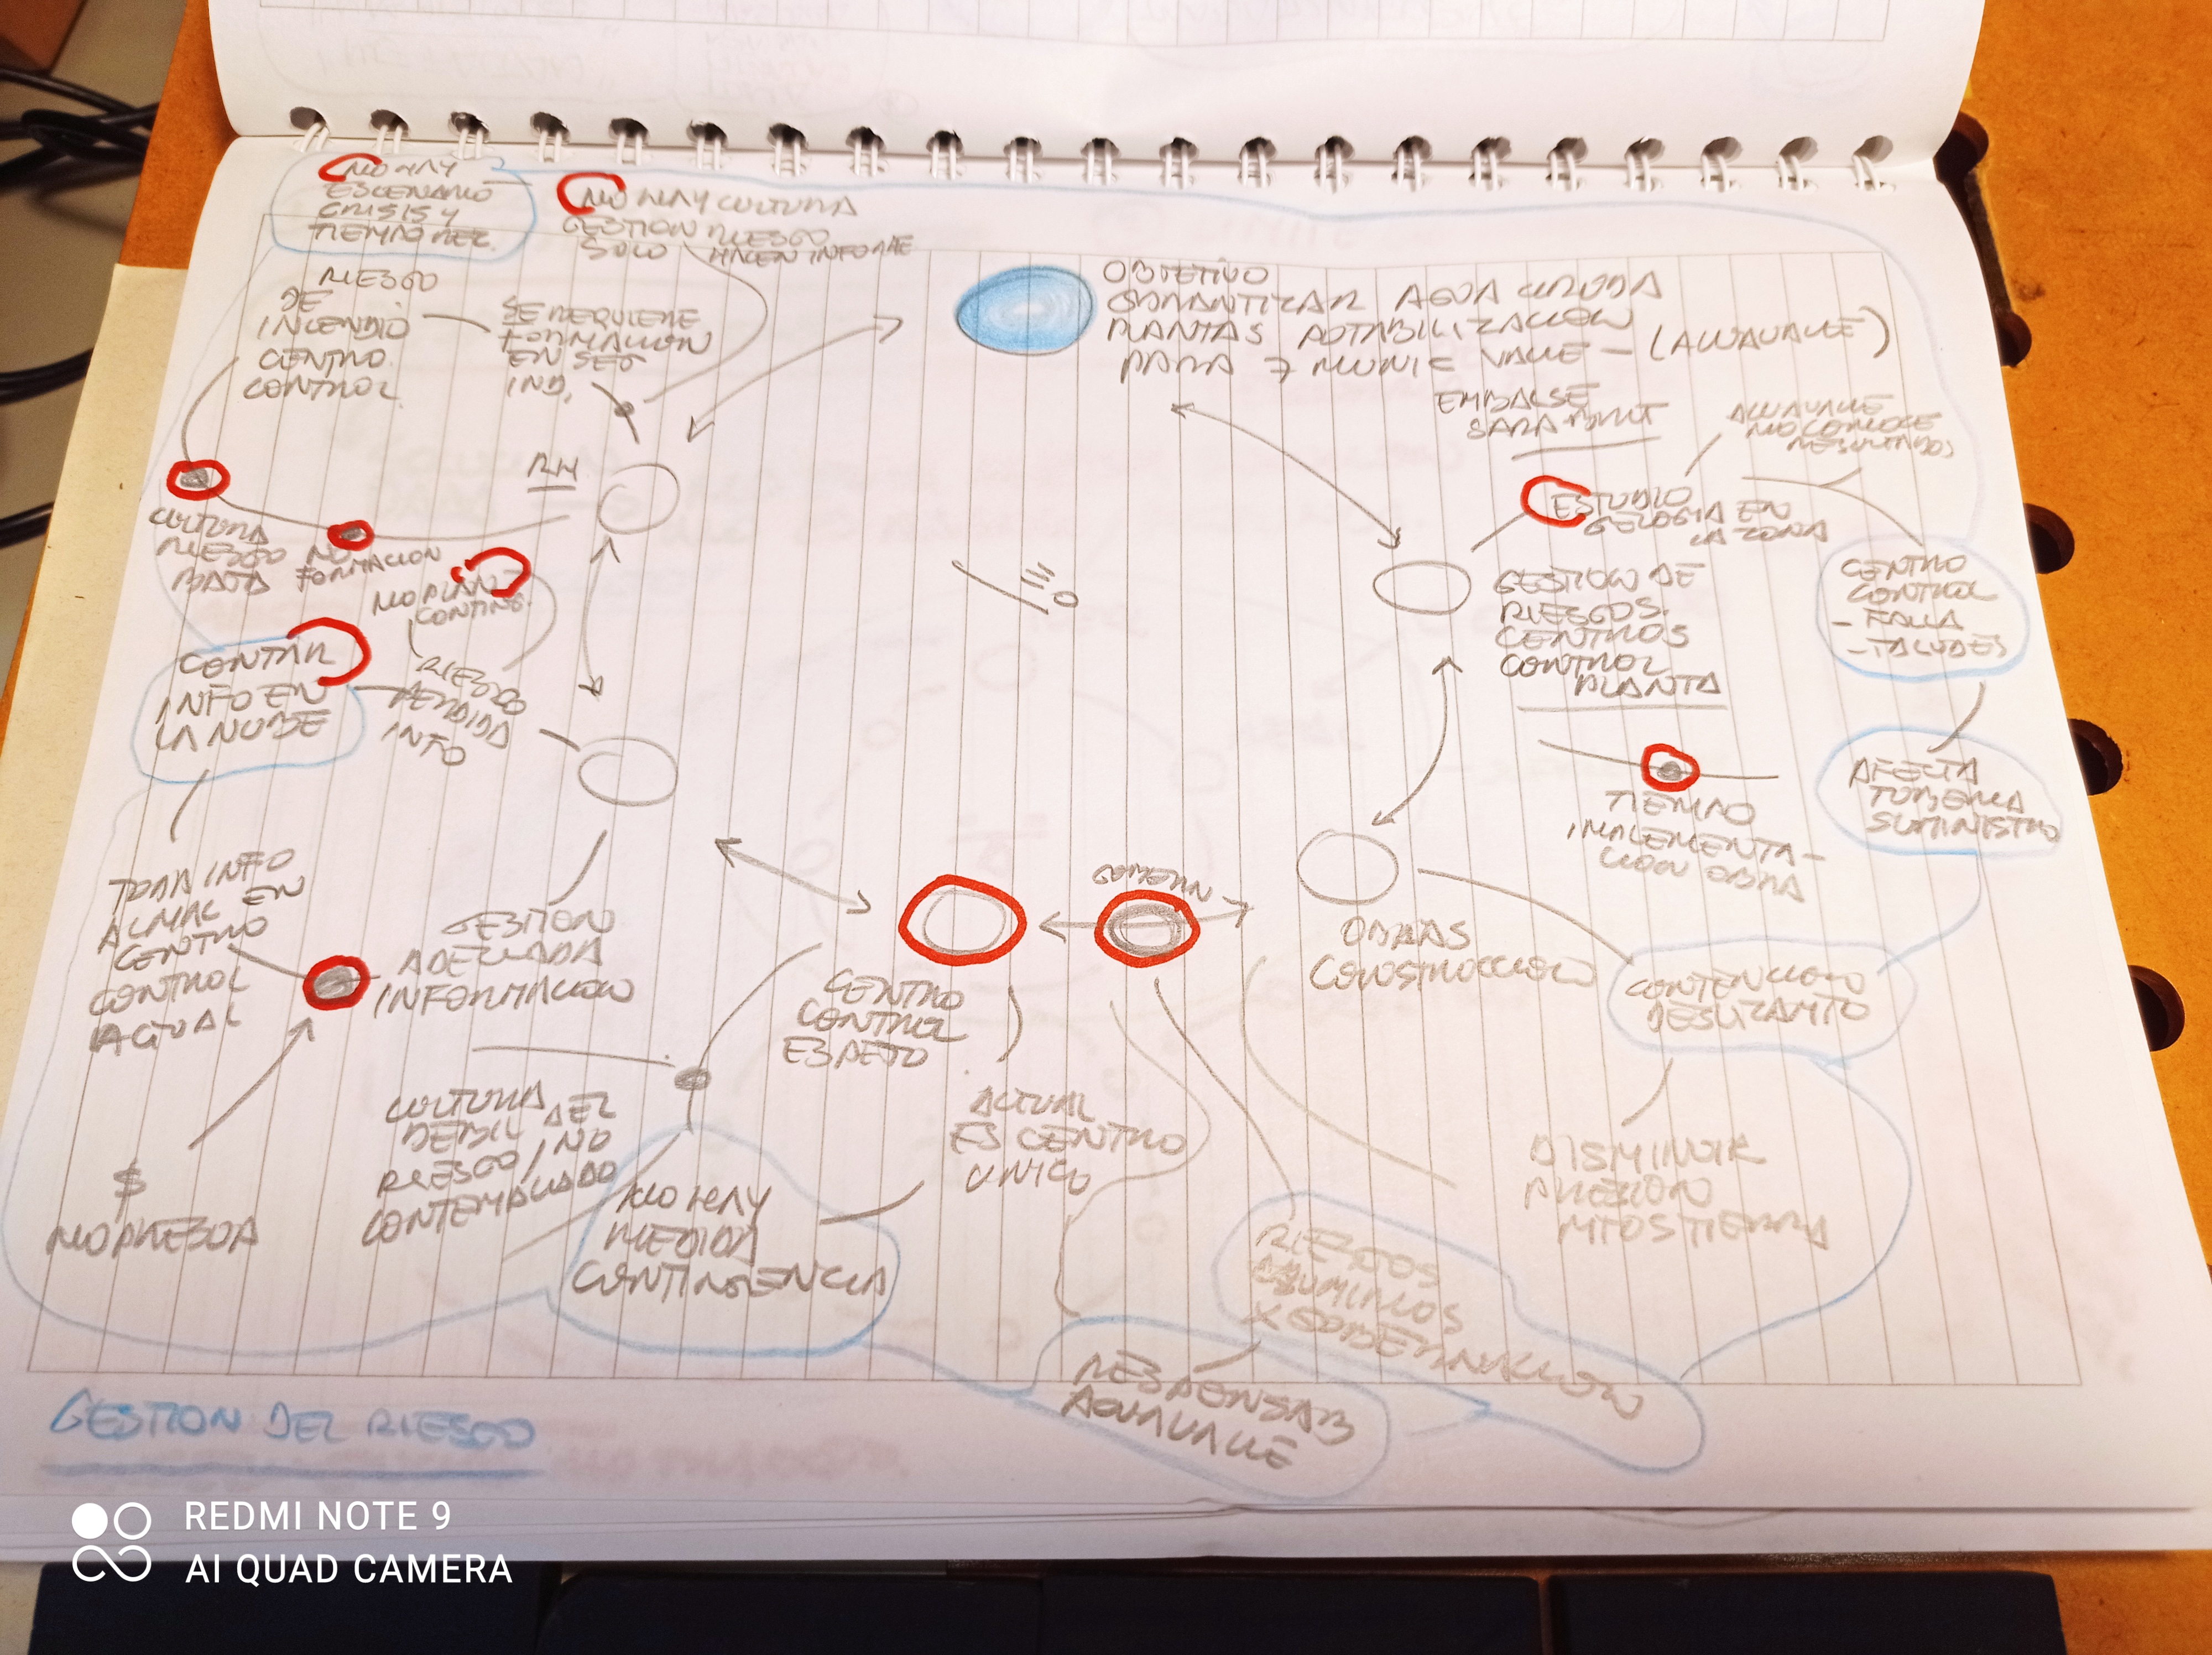 NO HAY
ESCENARIO
CRISIS Y
TIEMPO REC
NO HAY CULTURA
GESTION RIESGO
SOLO HACEN INFORME
RIESGO
DE
INCENDIO
CENTRO
CONTROL
SE REQUIERE
FORMACION
EN SEG
IND,
OBJETIVO
GARANTIZAR AGUA CRUDA
PLANTAS POTABILIZACION
PARA 7 MUNIC VALLE - (ACUAVALLE)
EMBALSE
SARA BRUT
ACUAVALLE
NO CONOCE
RESULTADOS
RH
ESTUDIO
GELOGIA EN
LA ZONA
CULTURA
RIESGO
BAJA
NO
FORMACION
NO PLAN
CONTING.
GESTION DE
RIESGOS.
CENTROS
CONTROL
PLANTA
CENTRO
CONTROL
- FALLA
- TALUDES
CONTAR
INFO EN
LA NUBE
RIESGO
PERDIDA
INFO
TIEMPO
IMPLEMENTA-
CION OBRA
AFECTA
TUBERIA
SUMINISTRO
TODA INFO
ALMAC EN
CENTRO
CONTROL
ACTUAL
GESTION
ADECUADA
INFORMACION
CENTRO
CONTROL
ESPEJO
GOBERN
OBRAS
CONSTRUCCION
CONTENCION
DESLIZAMTO
$
NO PRESUP
CULTURA
DEBIL DEL
RIESGO / NO
CONTEMPLADO
NO HAY
MEDIDA
CONTINGENCIA
ACTUAL
ES CENTRO
UNICO
DISMINUIR
PRESION
MTOS TIERRA
RIESGOS
ASUMIMOS
X GOBERNACION
RESPONSAB
AQUAVALLE
GESTION DEL RIESGO
REDMI NOTE 9
AI QUAD CAMERA